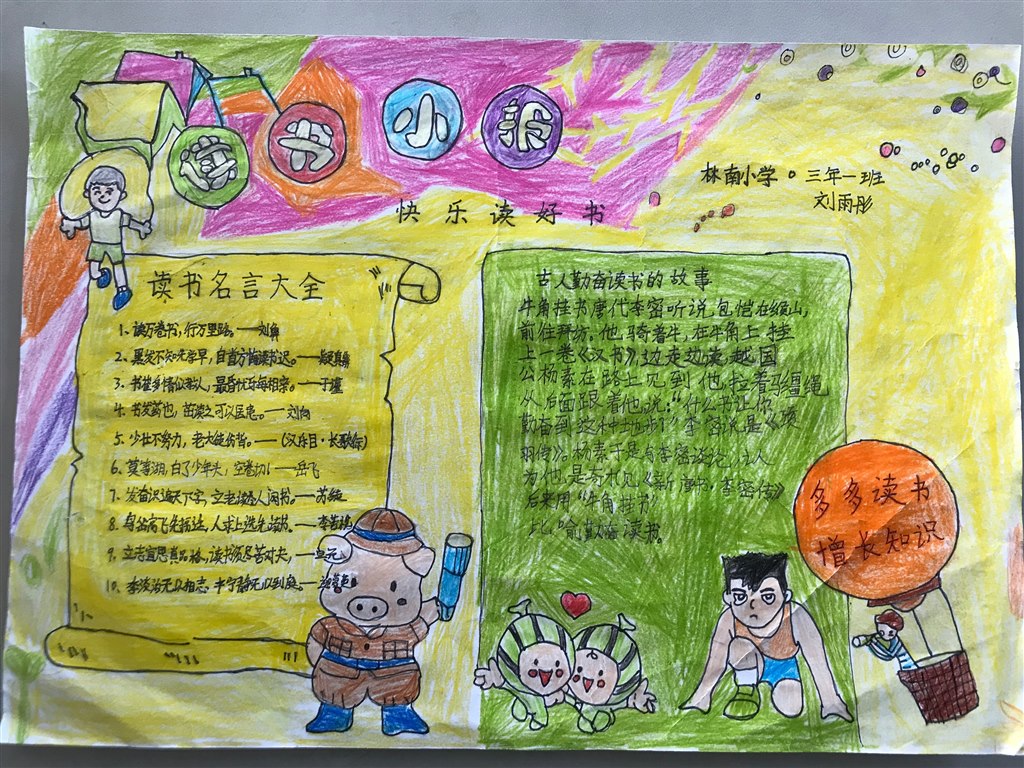 读书小报
林南小学。三年一班
刘雨彤
快乐读好书
读书名言大全
1、读万卷书，行万里路。——刘彝
2、黑发不知勤学早，白首方悔读书迟。——颜真卿
3、书犹多情似故人，最昏忧乐每相亲。——于谦
4、书犹药也，善读之可以医愚。——刘向
5、少壮不努力，老大徒伤悲。——（汉乐目·长歌行）
6、莫等闲，白了少年头，空悲切！——岳飞
7、发奋识遍天下字，立志读尽人间书。——苏轼
8、鸟欲高飞先振翅，人求上进先读书。——李苦禅
9、立志宜思真品格，读书须尽苦功夫，——阮元
10、
古人勤奋读书的故事
牛角挂书唐代李密听说，包恺在缑山，
前往拜访。他骑着牛，在牛角上挂
上一卷《汉书》边走边读越国
公杨素在路上见到他，拉着马缰绳
从后面跟着他，说："什么书让你
勤奋到这种地步？"李密说是《项
羽传》。杨素于是与李密谈论，让人
为他是与《新唐书·李密传》
后来用"牛角挂书"
比喻勤奋读书。
多多读书
增长知识